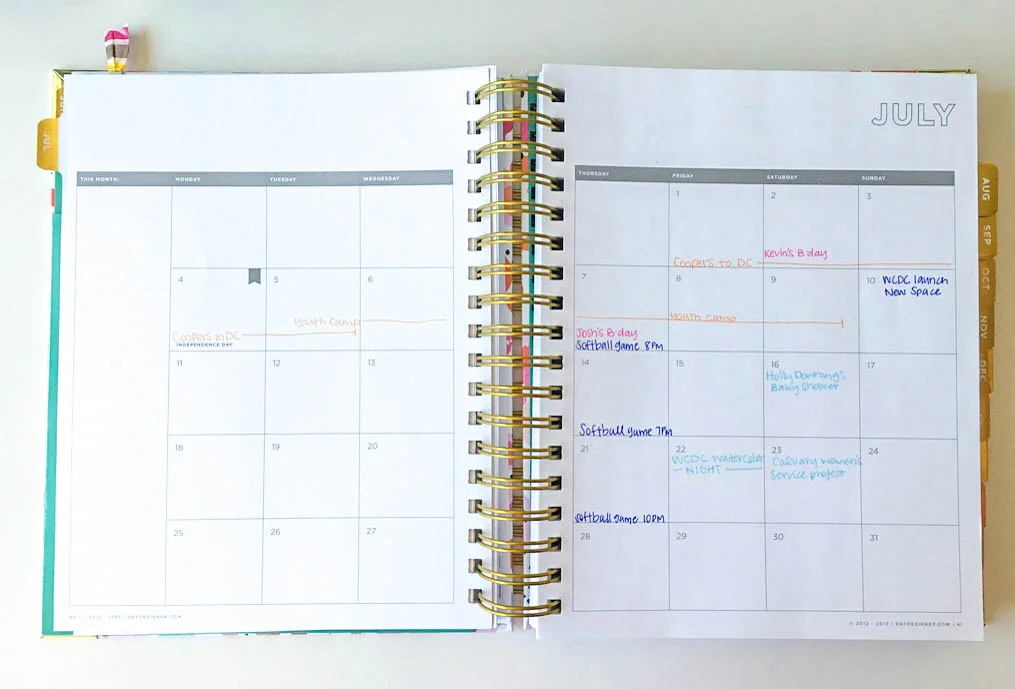 JULY
JUL
THIS MONTH:
MONDAY
TUESDAY
WEDNESDAY
THURSDAY
FRIDAY
SATURDAY
SUNDAY
1
2
3
Coopers to DC
Kevin's B day
4
5
6
Coopers in DC
INDEPENDENCE DAY
Youth Camp
7
8
9
10
WCDC launch
New Space
Youth Camp
Josh's B day
Softball game 8PM
11
12
13
14
15
16
17
Holly
Baby shower
Softball game 7PM
18
19
20
21
22
23
24
WCDC Watercolor
NIGHT
Calvary Women's
Service project
Softball game 10PM
25
26
27
28
29
30
31
AUG
SEP
OCT
NOV
DEC
DAYDESIGNER.COM
© 2012 - 2017 | DAYDESIGNER.COM | 41